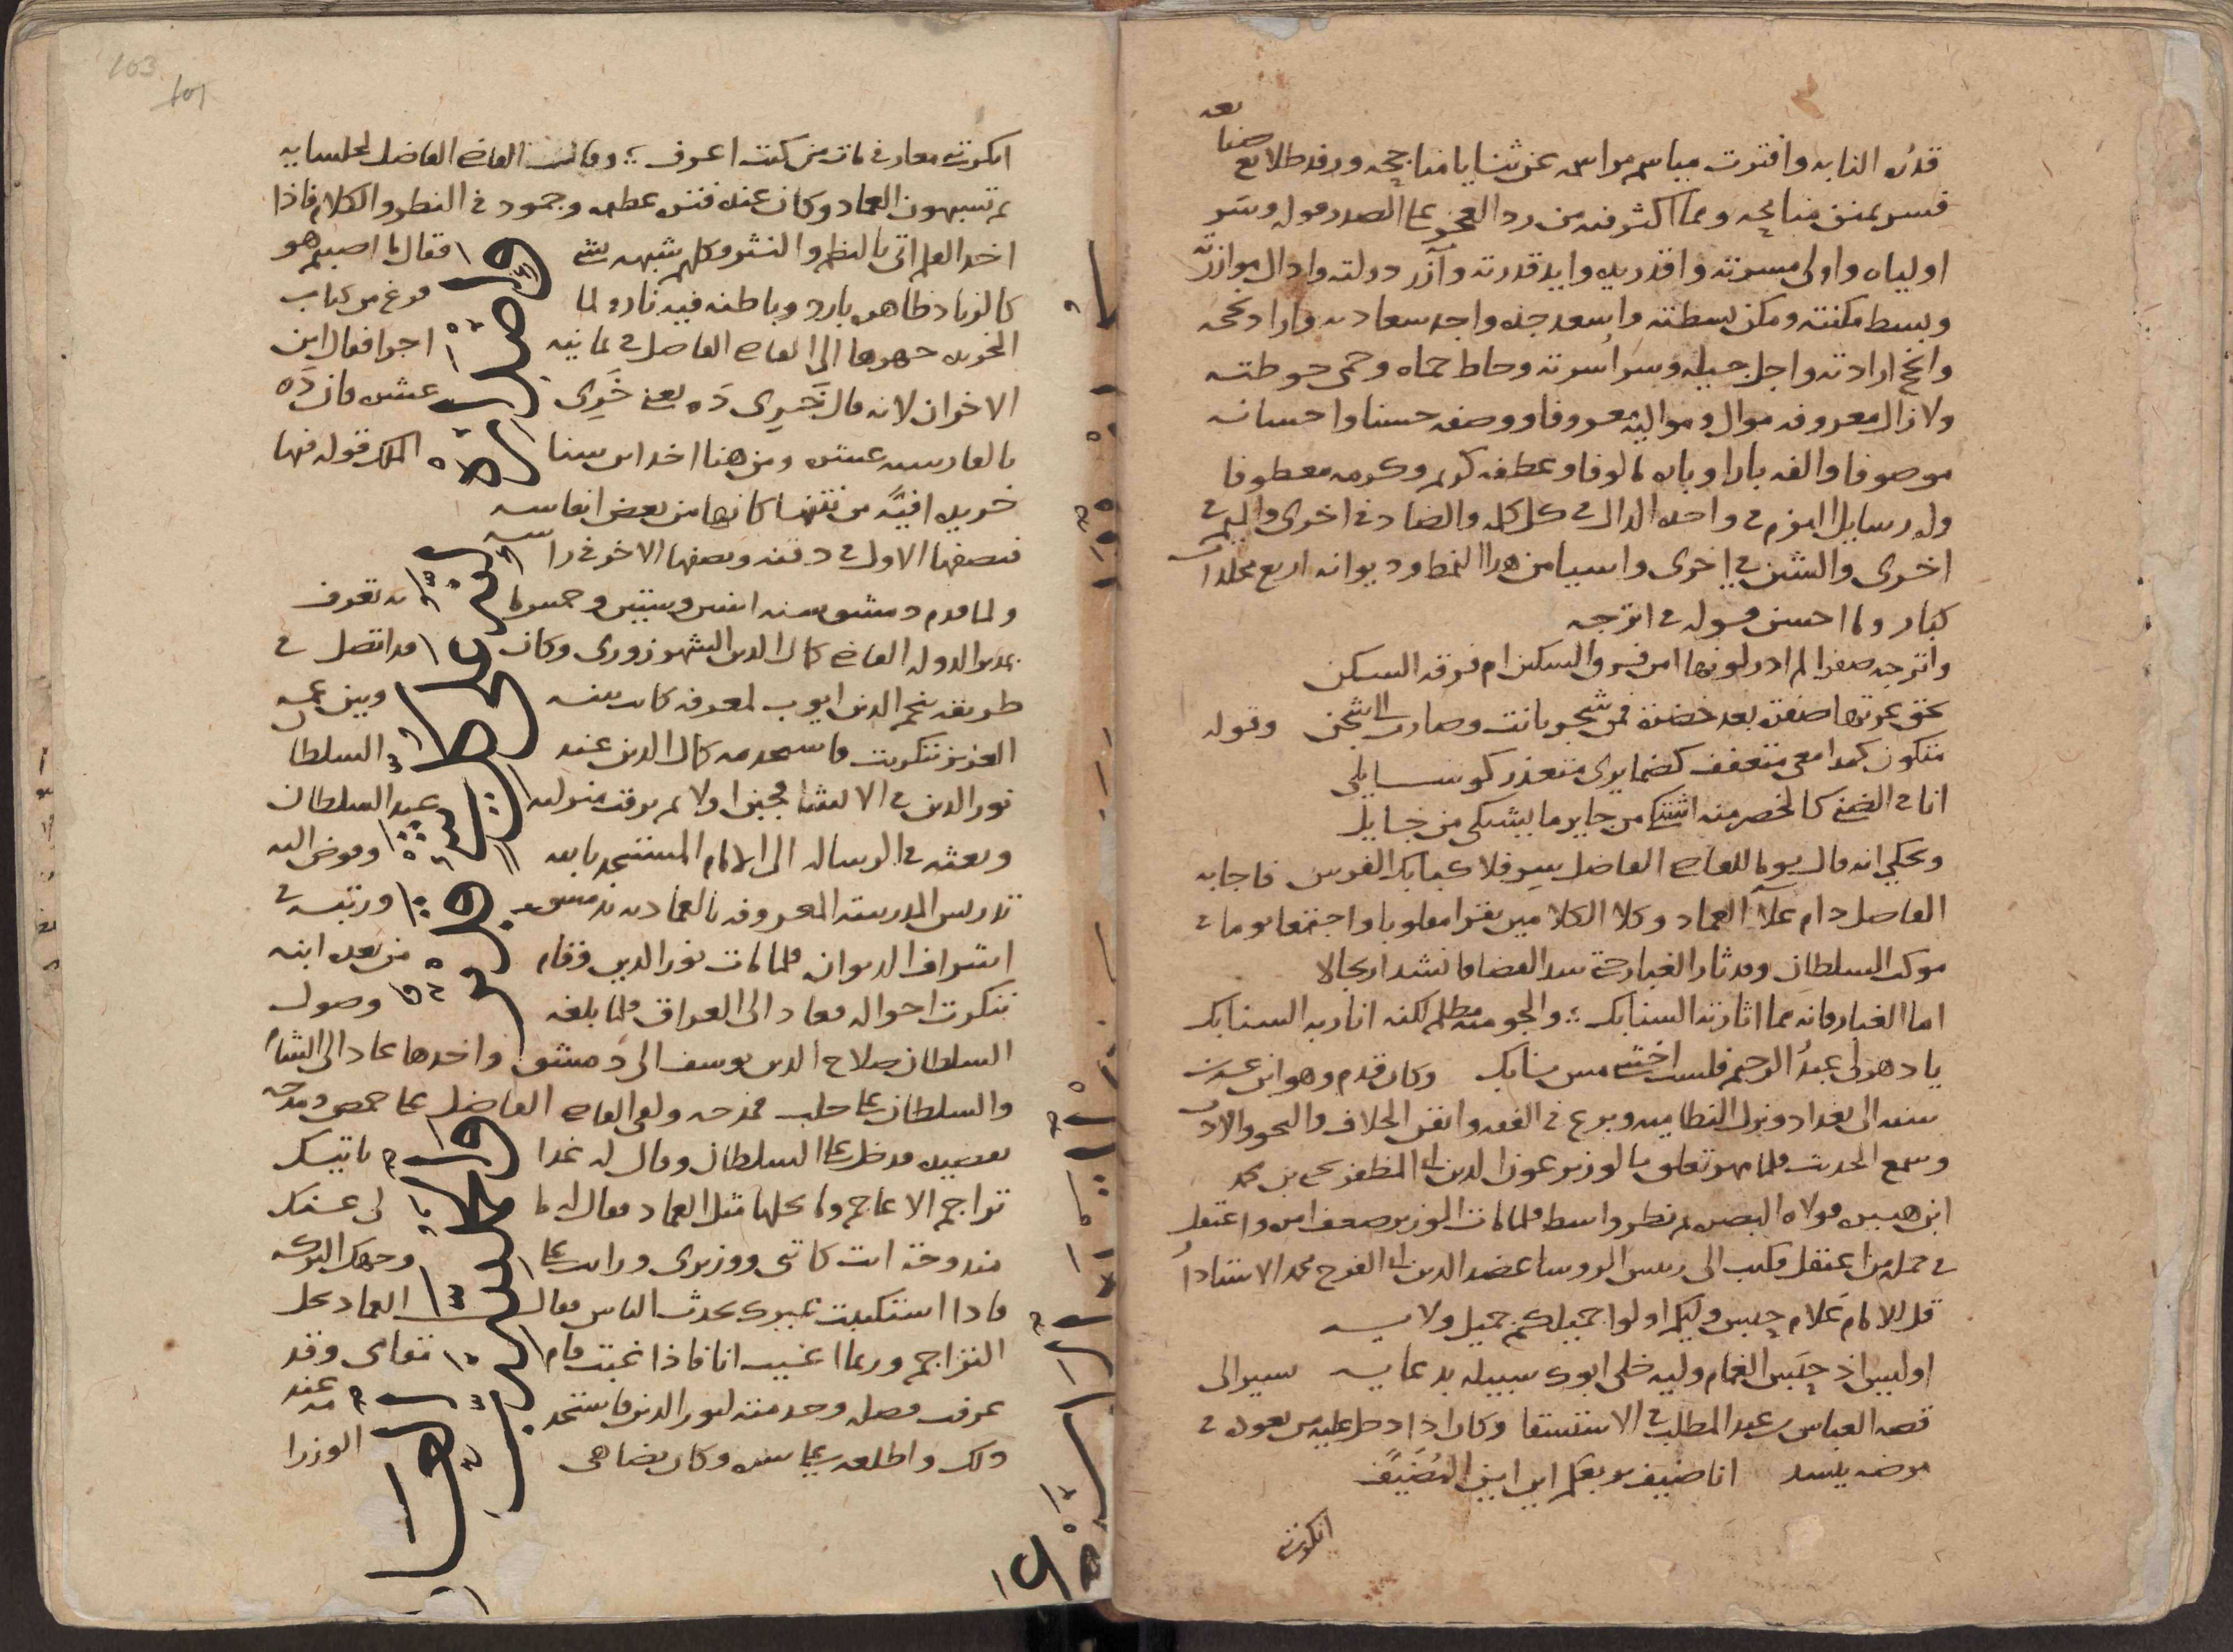 قدره النابه وافترت مباسم مراسمه عن ثنايا مناجحه ورفد طلايع صنايعه
فسر بمنن منايحه ومما اكثر فيه من رد العجز على الصدر قوله وسر
اولياه واولى مسرته واقدر يده وايد قدرته وآزر دولته وادال موازرته
وبسط مكنته ومكن بسطته واسعد جده واجد سعادته واراد نجحه
وانجح ارادته واجل جيله وسر اسرته وحاط حماه وحمى حوطته
ولا زال معروفه موال ومواليه معروفا ووصفه حسنا واحسانه
موصوفا والفه بارا وباره مالوفا وعطفه كرم وكرمه معطوفا
وله رسايل التزم في واحده الدال في كل كلمه والضاد في اخرى والميم في
اخرى والشين في اخرى واشيا من هذا النمط وديوانه اربع مجلدات
كبار وما احسن قوله في اترجه
واترجه صفرا لم ادر لونها امن فرق السكين ام فرقه السكن
بحق عرتها صفرة بعد خضرة فمن شجر بانت وصارت الى شجن وقوله
متلون كمدامعي متعفف كضمايري متعذر كوسايلي
انا في الضنى كالخصر منه اشتكى من جاير ما يشتكى من خايل
ويحكى انه قال يوما للقاضي الفاضل سر فلا كبا بك الفرس فاجابه
الفاضل دام علا العماد وكلا الكلامين يقرا مقلوبا واجتمعا يوما في
موكب السلطان وقد ثار الغبار حتى سد الفضا فانشد ارتجالا
اما الغبار فانه مما اثارته السنابك والجو منه مظلم لكنه انار به السنابك
يا دهر لي عبد الرحيم فلست اخشى مس نابك وكان قدم وهو ابن عشرين
سنه الى بغداد ونزل النظاميه وبرع في الفقه واتقن الخلاف والنحو والادب
وسمع الحديث فلما مهر تعلق بالوزير عون الدين ابى المظفر يحيى بن محمد
ابن هبيره فولاه البصره ثم نظر واسط فلما مات الوزير ضعف امره واعتقل
في جمله من اعتقل فكتب الى رييس الروسا عضد الدين ابى الفرج محمد الاستادار
قل للامام علام حبس وليكم اولوا جميلكم جميل ولايه
اوليس اذ حبس الغمام وليه خلى ابوك سبيله بدعايه سير الى
قصه العباس بن عبد المطلب في الاستسقا وكان اذا دخل عليه من يعوده في
مرضه ينشد انا ضيف بربعكم اين اين المضيف
انكرتني
انكرتني معارفي مات من كنت اعرف وقال القاضي الفاضل لجلسايه
بم تشبهون العماد وكان عنده فتره عظيمه وجمود في النظر والكلام فاذا
اخذ القلم اتى بالنظم والنثر وكلهم شبهه بشي فقال ما اصبتم هو
كالزناد ظاهره بارد وباطنه فيه نار ولما فرغ من كتاب
الخريده جهزها الى القاضي الفاضل في ثمانيه اجزا فقال اين
الاخران لانه قال خَرِي دَه يعني خَرِى عشره فان دَه
بالفارسيه عشره ومن هنا اخذ ابن سنا الملك قوله فيها
خريده افيّه من نتنها كانها من بعض انفاسه
فنصفها الاول في دقنه ونصفها الاخر في راسه
ولما قدم دمشق سنه اثنين وستين وخمس مايه تعرف
بمدبر الدوله القاضي كمال الدين الشهرزوري وكان قد اتصل في
طريقه بنجم الدين ايوب لمعرفه كانت بينه وبين عمه
العزيز بتكريت فاستخدمه كمال الدين عند السلطان
نور الدين في الانشا فجبن اولا ثم ترقت منزلته عند السلطان
وبعثه في الرساله الى الامام المستنجد بالله وفوض اليه
تدريس المدرسه المعروفه بالعماديه بدمشق ورتبه في
اشراف الديوان فلما مات نور الدين وقام من بعده ابنه
تنكرت احواله فعاد الى العراق فلما بلغه وصول
السلطان صلاح الدين يوسف الى دمشق واخذها عاد الى الشام
والسلطان على حلب فمدحه ولقى القاضي الفاضل على حمص ومدحه
بقصيده فدخل على السلطان وقال له غدا ياتيك
تراجم الاعاجم وما يحلها مثل العماد فقال له ما لى عنك
مندوحة انت كاتبى ووزيري ورايت على وجهك البركه
فاذا استكتبت غيرك تحدث الناس فقال العماد يحل
التراجم وربما اغيب انا فاذا غبت قام مقامي وقد
عرفت فضله وخدمته لنور الدين فاستخدمه عند
ذلك واطلعه على سره وكان يضاهى الوزرا